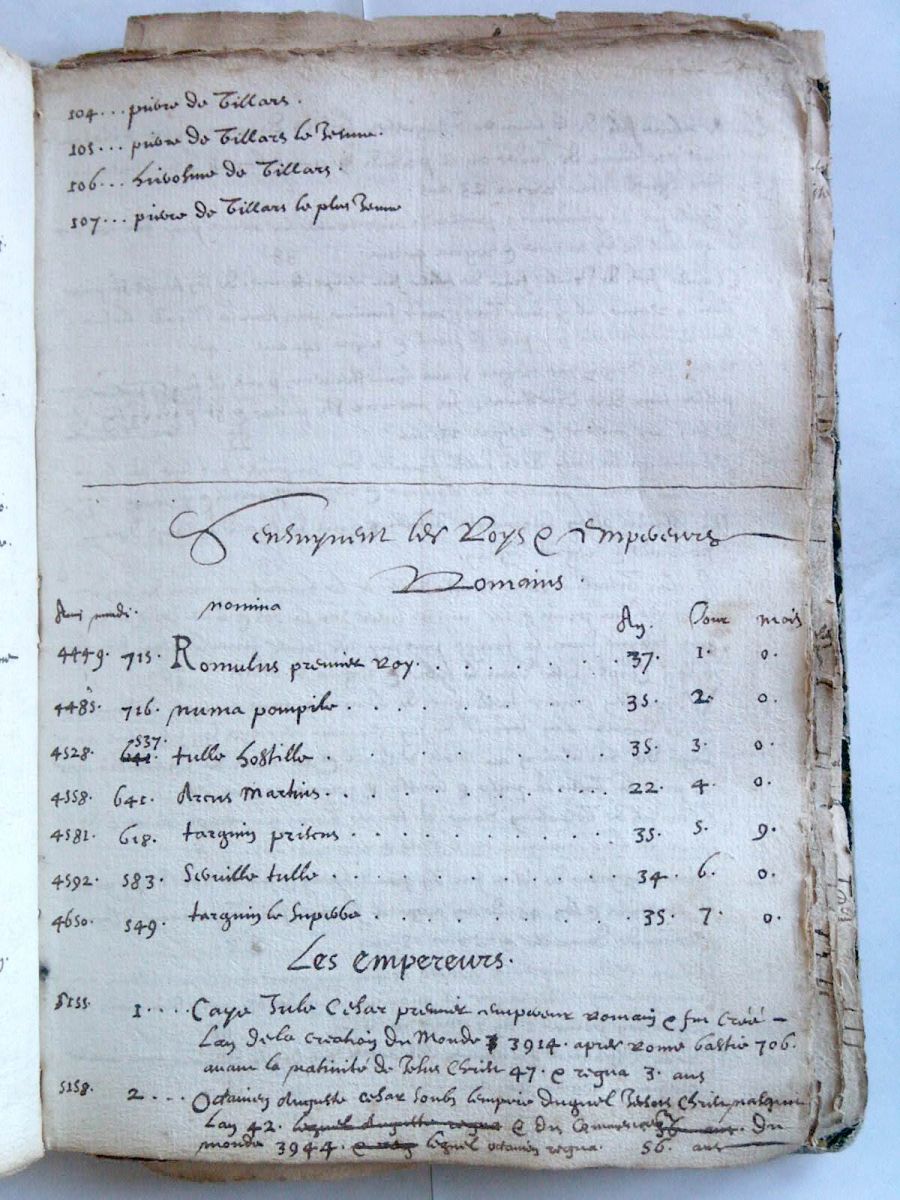 104... pierre de Villars.
105... pierre de Villars le Jeune.
106... hierosme de Villars
107... pierre de Villars le plus Jeune
Sensuyvent les Roys & Empereurs
Romains.
Anni mundi. nomina An. Jour mois
4449. 715. Romulus premier Roy. 37. 1. 0.
4485. 716. numa pompile. 35. 2. 0.
4528. 537. tulle hostille 35. 3. 0.
4558. 641. Ancus Martius. 22. 4. 0.
4581. 618. tarquin priscus 35. 5. 9.
4592. 583. Serville tulle 34. 6. 0.
4650. 549. tarquin le Superbe 35. 7. 0.
Les empereurs.
5155. 1.... Caye Jule Cesar premier empereur romain & fut créé
Lan de la creation du Monde 3914. apres Rome bastie 706.
avant la nativité de Jesus Christ 47. & regna 3. ans
5158. 2... Octavien Auguste cesar soubz lempire duquel Jesus Christ nasquit
Lan 42. lequel Auguste regna & du commencement du
monde 3944. lequel octavien regna. 56. ans